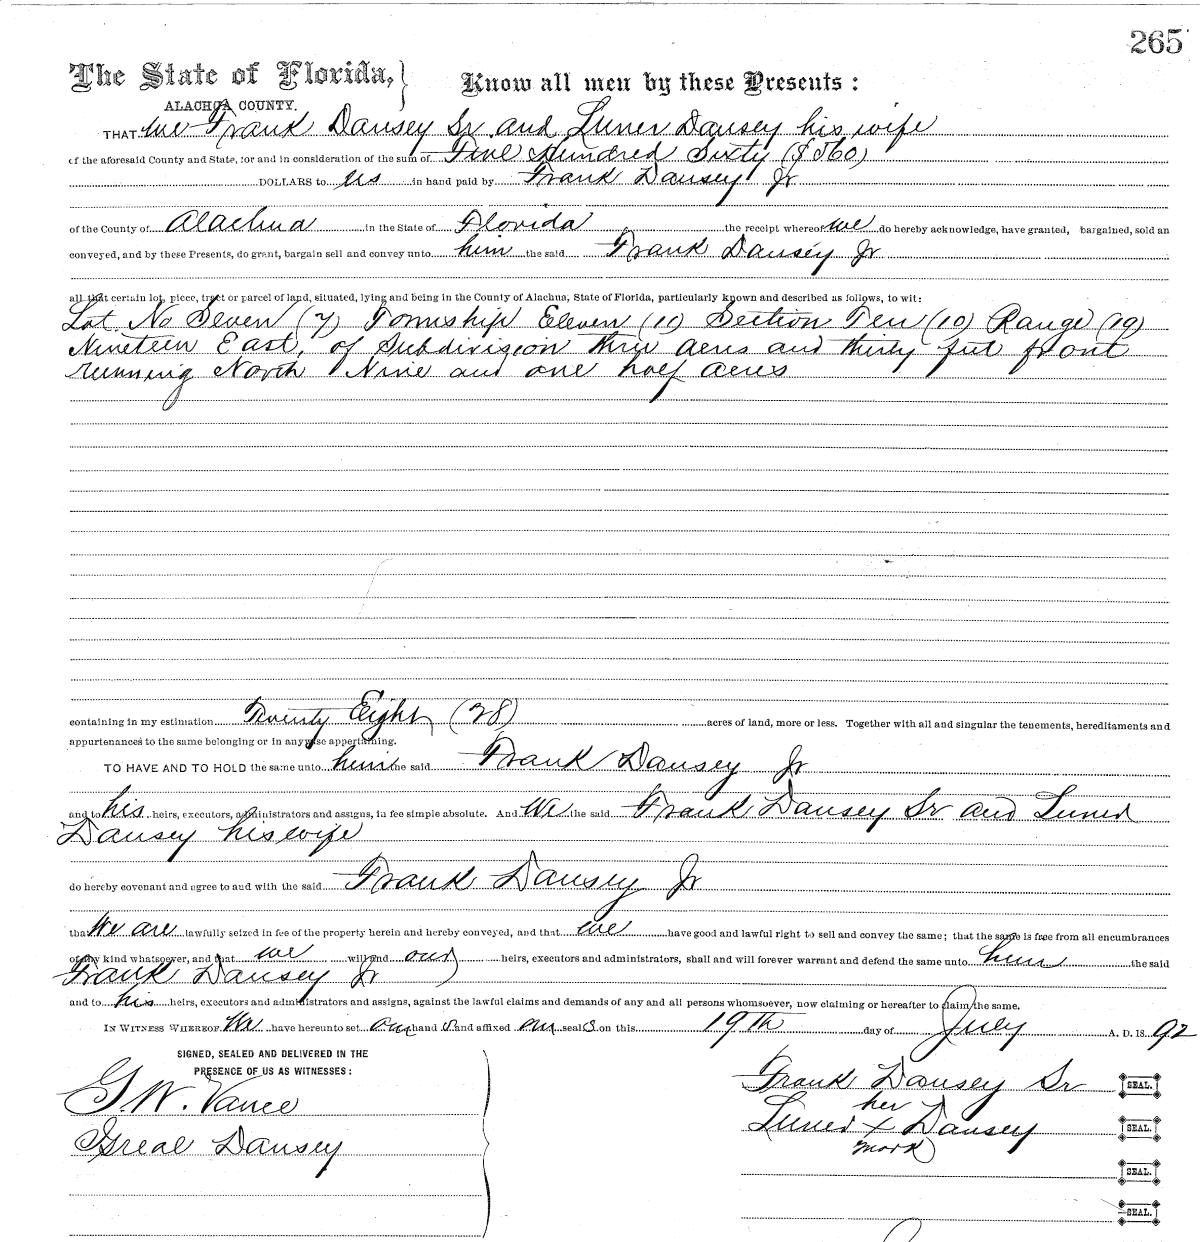 265
The State of Florida, Know all men by these Presents:
ALACHUA COUNTY.
THAT we Frank Dansey Sr and Luner Dansey his wife
of the aforesaid County and State, for and in consideration of the sum of Five Hundred Sixty ($560)
DOLLARS to us in hand paid by Frank Dansey Jr
of the County of Alachua in the State of Florida the receipt whereof we do hereby acknowledge, have granted, bargained, sold an
conveyed, and by these Presents, do grant, bargain sell and convey unto him the said Frank Dansey Jr
all that certain lot, piece, tract or parcel of land, situated, lying and being in the County of Alachua, State of Florida, particularly known and described as follows, to wit:
Lot No Seven (7) Township Eleven (11) Section Ten (10) Range (19)
Nineteen East, of Subdivision three acres and thirty feet front
running North Nine and one half acres
containing in my estimation Twenty Eight (28) acres of land, more or less. Together with all and singular the tenements, hereditaments and
appurtenances to the same belonging or in anywise appertaining.
TO HAVE AND TO HOLD the same unto him the said Frank Dansey Jr
and to his heirs, executors, administrators and assigns, in fee simple absolute. And We the said Frank Dansey Sr and Luner
Dansey his wife
do hereby covenant and agree to and with the said Frank Dansey Jr
that We are lawfully seized in fee of the property herein and hereby conveyed, and that we have good and lawful right to sell and convey the same; that the same is free from all encumbrances
of any kind whatsoever, and that we will and our heirs, executors and administrators, shall and will forever warrant and defend the same unto him the said
Frank Dansey Jr
and to his heirs, executors and administrators and assigns, against the lawful claims and demands of any and all persons whomsoever, now claiming or hereafter to claim the same.
IN WITNESS WHEREOF We have hereunto set our hand s and affixed our seal s on this 19th day of July A. D. 18 92
SIGNED, SEALED AND DELIVERED IN THE
PRESENCE OF US AS WITNESSES:
G. W. Vance
Greal Dansey
Frank Dansey Sr SEAL.
her
Luner X Dansey SEAL.
mark
SEAL.
SEAL.